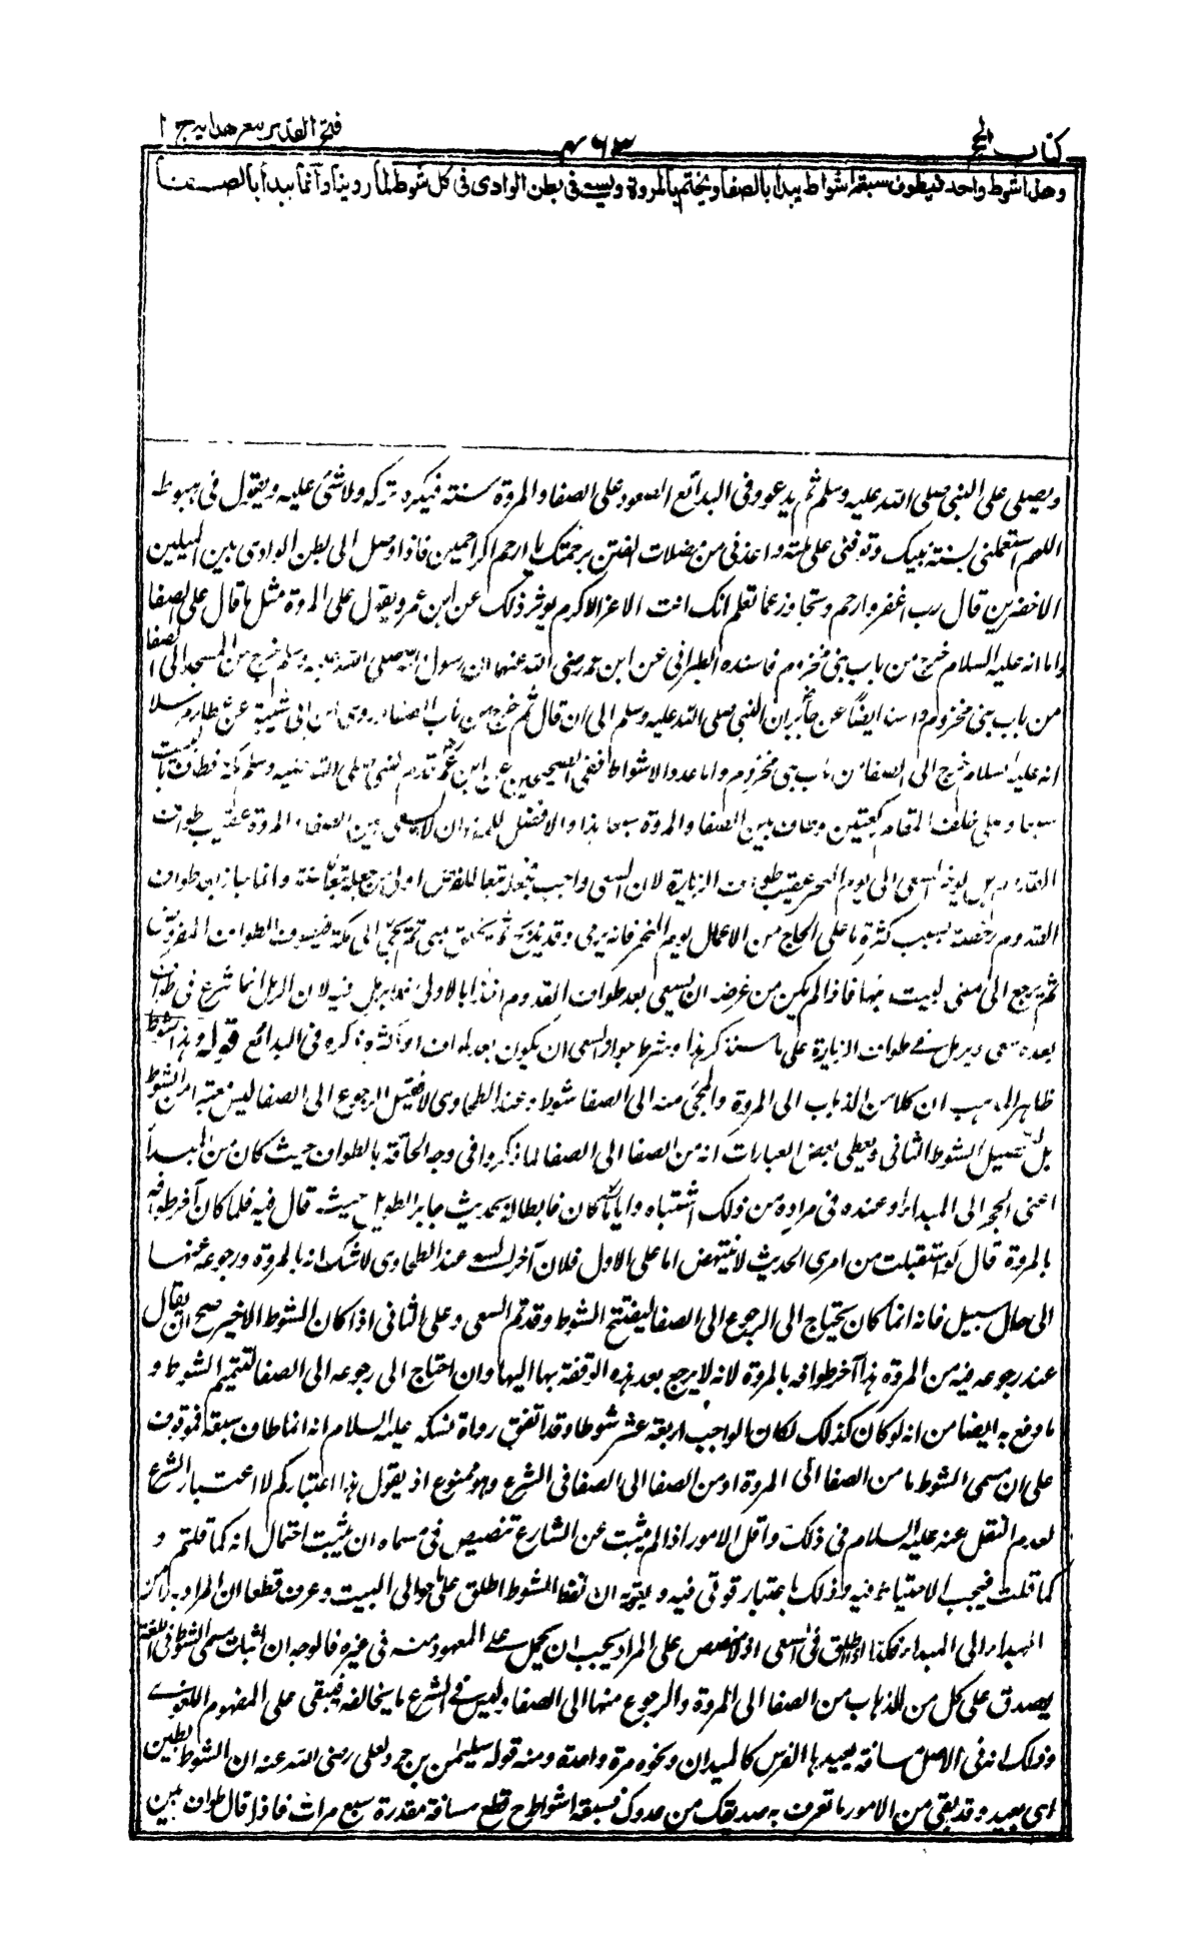 كتاب الحج
٤٦٣
فتح القدير مع هدايه ج ١
وهذا شوط واحد فيطوف سبعة اشواط يبدأ بالصفا ويختم بالمروة ويسعى فى بطن الوادى فى كل شوط لما روينا وانما يبدأ بالصفا
ويصلى على النبى صلى الله عليه وسلم ثم يدعو وفى البدائع الصعود على الصفا والمروة سنته فيكره تركه ولا شئ عليه ويقول فى هبوطه
اللهم استعملنى لسنة نبيك وتوفنى على ملته واعذنى من مضلات الفتن برحمتك يا ارحم الراحمين فاذا وصل الى بطن الوادى بين الميلين
الاخضرين قال رب اغفر وارحم وتجاوز عما تعلم انك انت الاعز الاكرم يوثر ذلك عن ابن عمر ويقول على المروة مثل ما قال على الصفا
واما انه عليه السلام خرج من باب بنى مخزوم فاسنده الطبرانى عن ابن عمر رضى الله عنهما ان رسول الله صلى الله عليه وسلم خرج من المسجد الى الصفا
من باب بنى مخزوم واسند ايضًا عن جابر ان النبى صلى الله عليه وسلم الى ان قال ثم خرج من باب الصفا وروى ابن ابى شيبة عن عطاء مرسلا
انه عليه السلام خرج الى الصفا من باب بنى مخزوم واما عدد الاشواط ففى الصحيحين عن ابن عمر قدم النبى صلى الله عليه وسلم مكة فطاف بالبيت
سبعا وصلى خلف المقام ركعتين وطاف بين الصفا والمروة سبعا هذا والافضل للمفرد ان لا يسعى بين الصفا والمروة عقيب طواف
القدوم بل يؤخر السعى الى يوم النحر عقيب طواف الزيارة لان السعى واجب فجعله تبعا للفرض اولى من جعله تبعًا للسنة وانما جاز بعد طواف
القدوم رخصة بسبب كثرة ما على الحاج من الاعمال يوم النحر فانه يرمى وقد يذبح ثم يحلق بمنى ثم يجئ الى مكة فيطوف الطواف المفروض
ثم يرجع الى منى ليبيت بها فاذا لم يكن من غرضه ان يسعى بعد طواف القدوم اخذا بالاولى فلا يرمل فيه لان الرمل انما شرع فى طواف
بعده سعى ويرمل فى طواف الزيارة على ما سنذكر هذا وشرط جواز السعى ان يكون بعد طواف او اكثره ذكره فى البدائع قوله وهذا شوط
ظاهر المذهب ان كلا من الذهاب الى المروة والمجئ منه الى الصفا شوط وعند الطحاوى لا فقيل الرجوع الى الصفا ليس معتبرا من الشوط
بل لتحصيل الشوط الثانى ويعطى بعض العبارات انه من الصفا الى الصفا لما ذكروا فى وجه الحاقه بالطواف حيث كان من المبدأ
اعنى الحجر الى المبدا وعنده فى مراده من ذلك اشتباه وايا ما كان فابطاله بحديث جابر الطويل حيث قال فيه فلما كان آخر طوافه
بالمروة قال لو استقبلت من امرى الحديث لا ينتهض اما على الاول فلان آخر السعى عند الطحاوى لا شك انه بالمروة ورجوعه عنها
الى حال سبيله فانه انما كان يحتاج الى الرجوع الى الصفا ليفتتح الشوط وقد تم السعى وعلى الثانى اذا كان الشوط الاخير صح ان يقال
عند رجوعه فيه من المروة هذا آخر طوافه بالمروة لانه لا يرجع بعد هذه الوقفة بها اليها وان احتاج الى رجوعه الى الصفا لتتميم الشوط و
ما دفع به ايضا من انه لو كان كذلك لكان الواجب اربعة عشر شوطا وقد اتفق رواة نسكه عليه السلام انه انما طاف سبعة فموقوف
على ان مسمى الشوط ما من الصفا الى المروة او من الصفا الى الصفا فى الشرع وهو ممنوع اذ يقول هذا اعتباركم لا اعتبار الشرع
لعدم النقل عنه عليه السلام فى ذلك واقل الامور اذا لم يثبت عن الشارع تنصيص فى مسماه ان يثبت احتمال انه كما قلتم و
كما قلت فيجب الاحتياط فيه وذلك باعتبار قوتى فيه ويقويه ان لفظ الشوط اطلق على ما حوالى البيت وعرف قطعا ان المراد به ما من
المبدا الى المبدا فكذا اذا اطلق فى السعى اذ لا تنصيص على المراد يجب ان يحمل على المعهود منه فى غيره فالوجه ان اثبات مسمى الشوط فى اللغة
يصدق على كل من الذهاب من الصفا الى المروة والرجوع منها الى الصفا وليس فى الشرع ما يخالفه فيبقى على المفهوم اللغوى
وذلك انه فى الاصل مسافة يعيد بها الفرس كالميدان ونحوه مرة واحدة ومنه قوله سليمن بن صرد لعلى رضى الله عنه ان الشوط بطين
اى بعيد وقد بقى من الامور ما تعرف به صديقك من عدوك فسبعة اشواط ح قطع مسافة مقدرة سبع مرات فاذا قال طواف بين